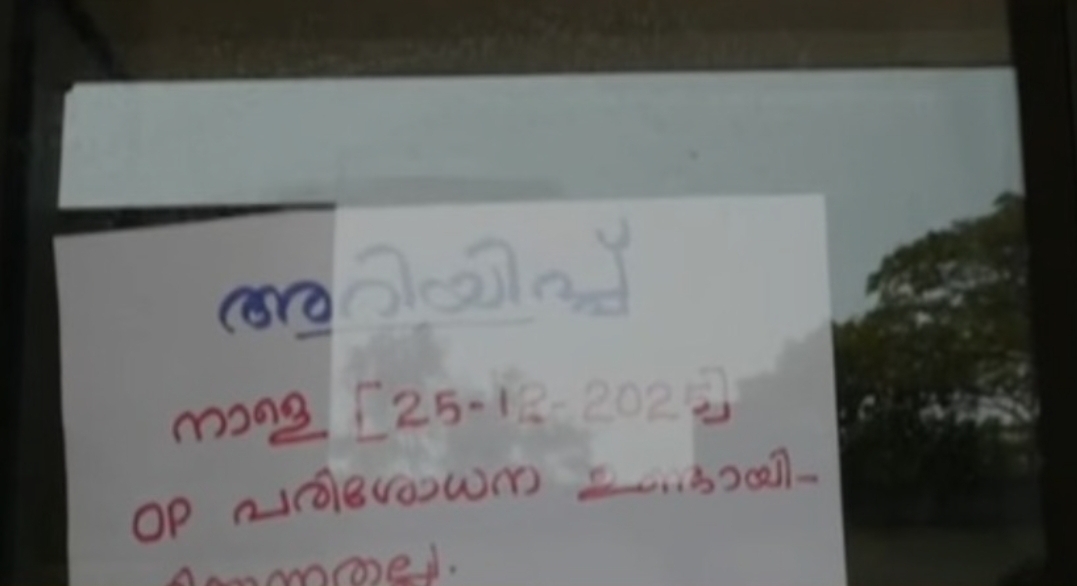 അറിയിപ്പ്
നാളെ [25-12-2025]
OP പരിശോധന ഉണ്ടായി-
രിക്കുന്നതല്ല.